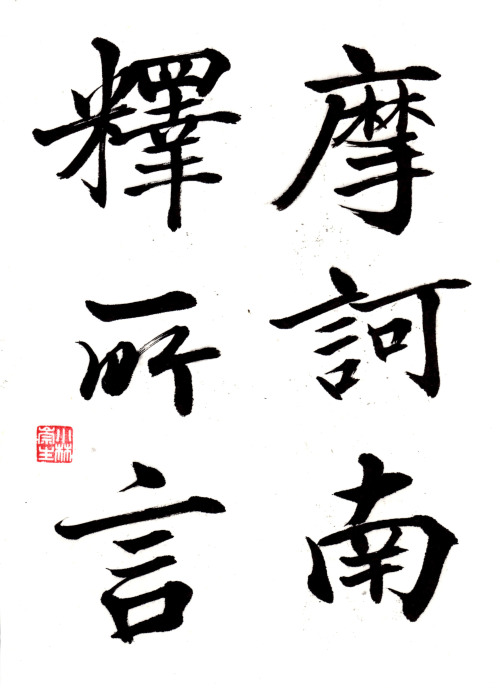 摩訶南
釋所言
小林